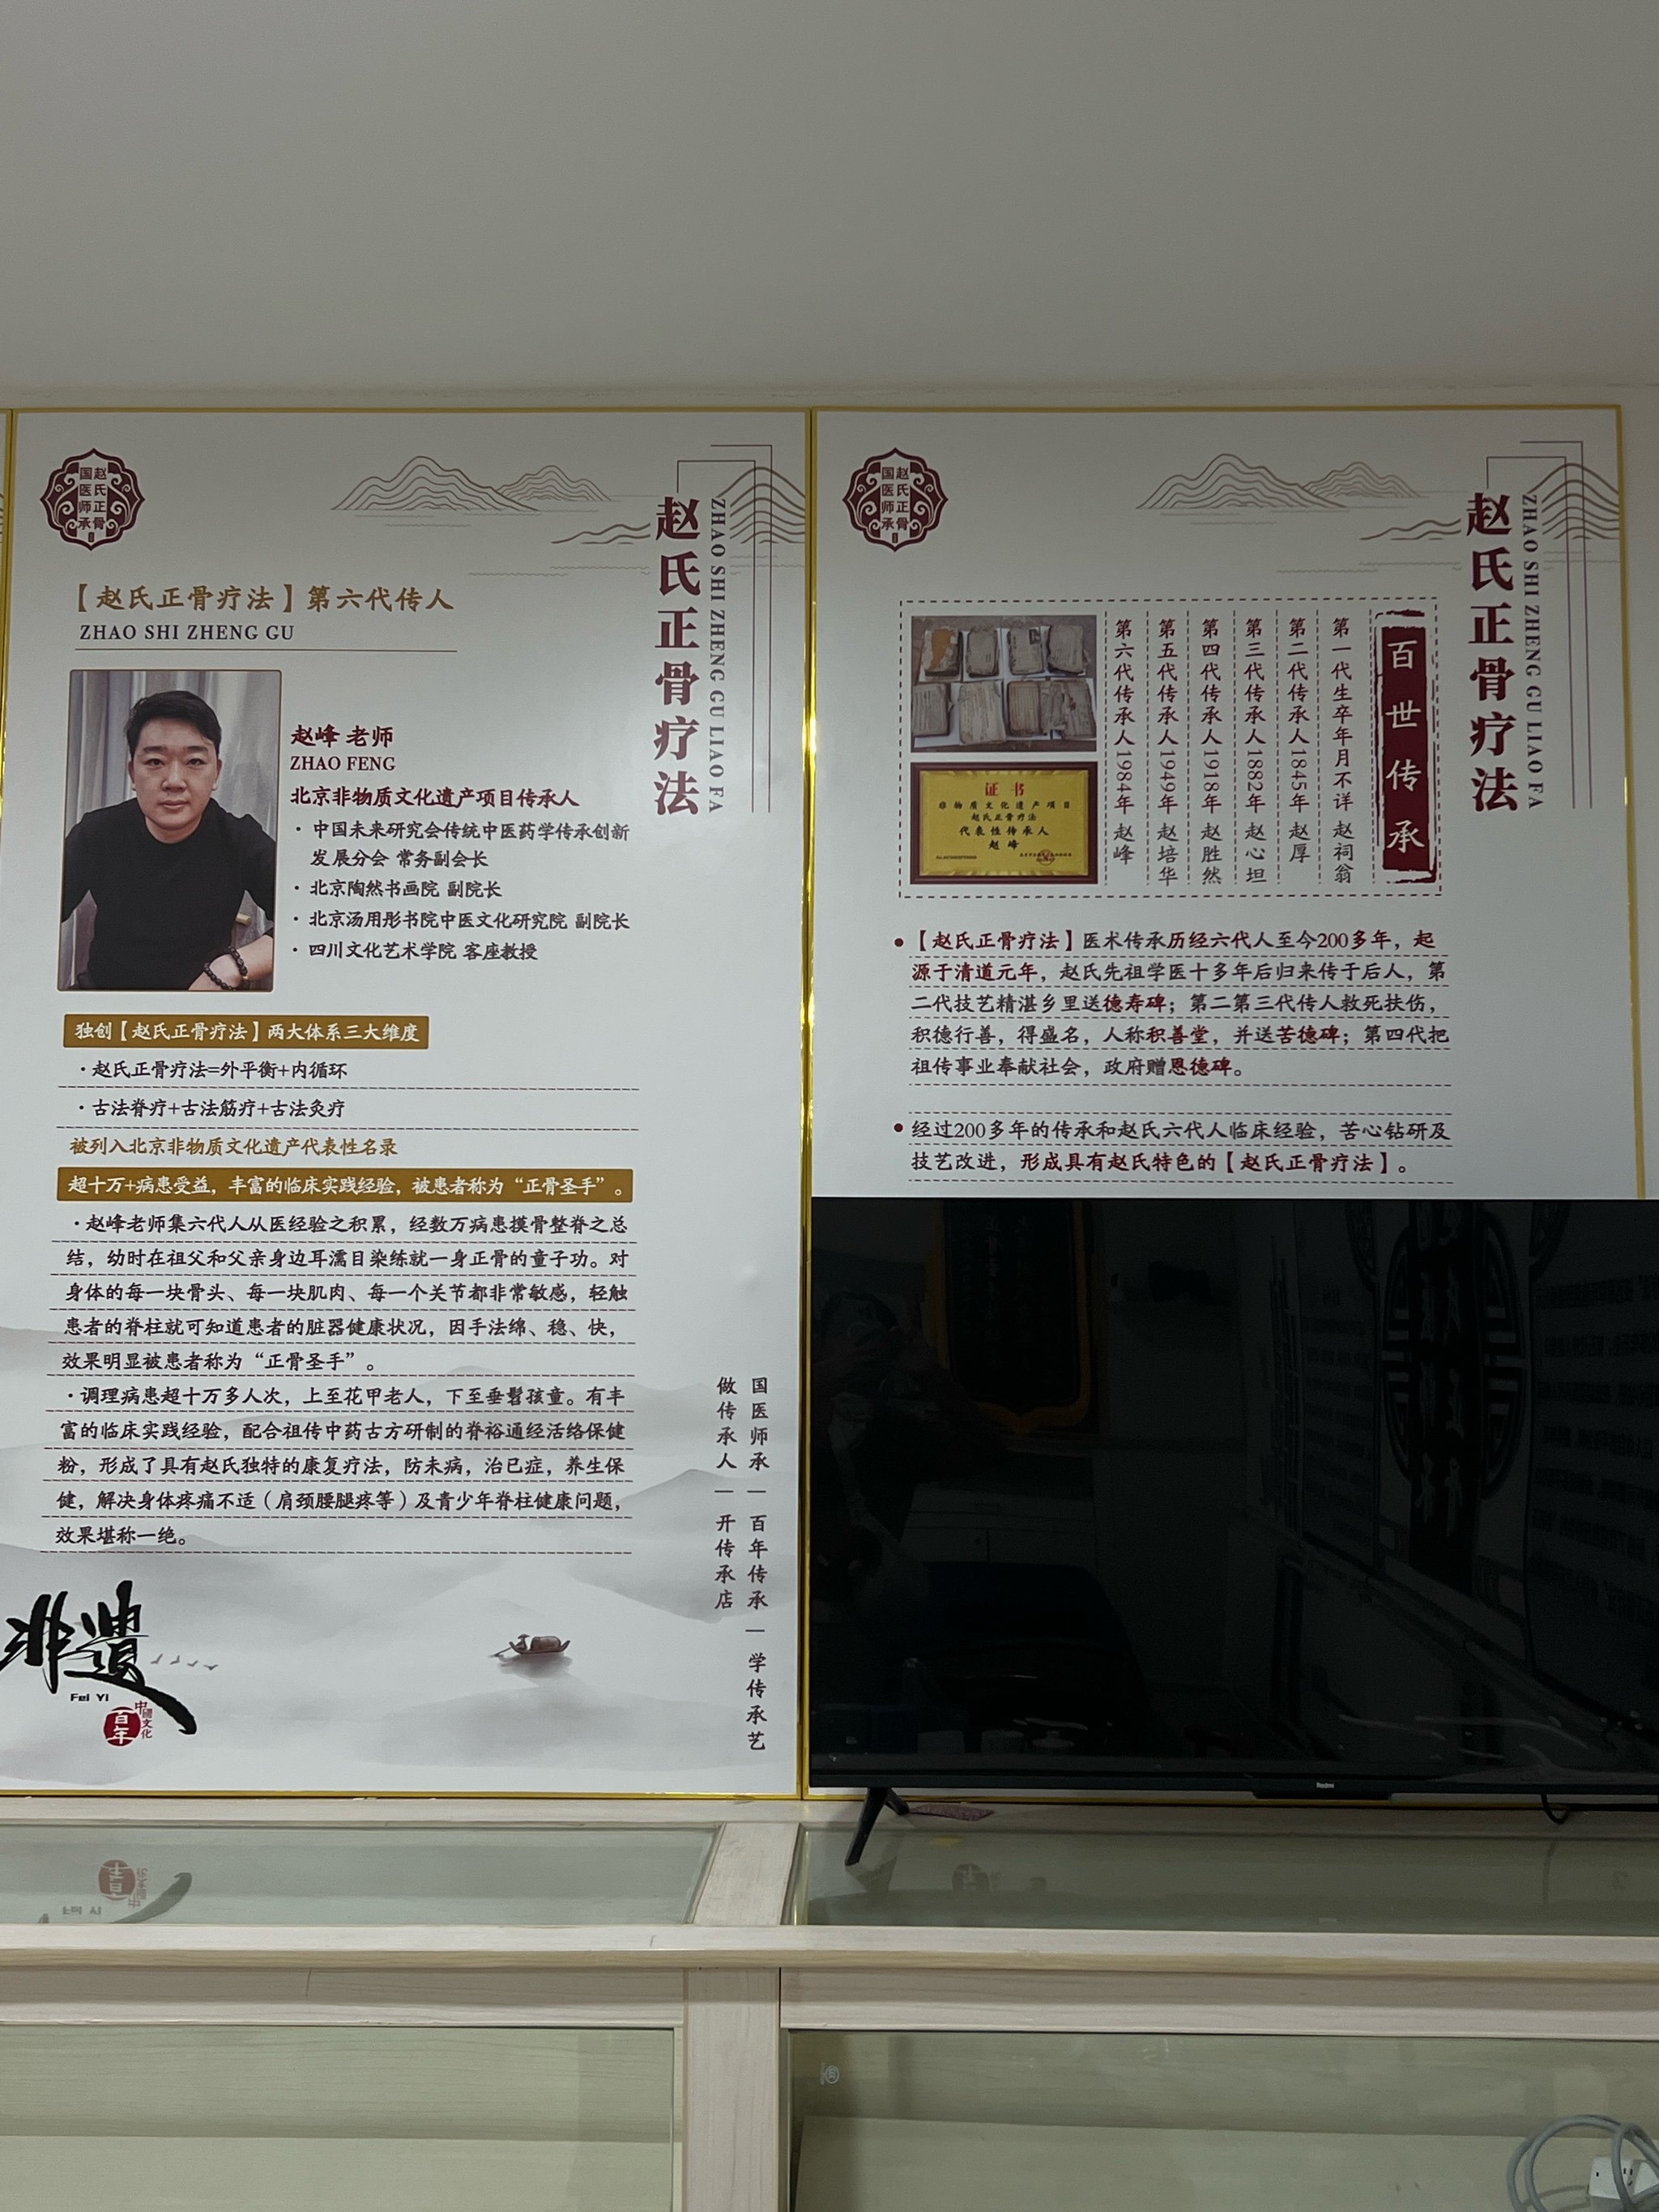 赵氏正骨
国医师承
赵氏正骨疗法
ZHAO SHI ZHENG GU LIAO FA
【赵氏正骨疗法】第六代传人
ZHAO SHI ZHENG GU
赵峰 老师
ZHAO FENG
北京非物质文化遗产项目传承人
· 中国未来研究会传统中医药学传承创新
发展分会 常务副会长
· 北京陶然书画院 副院长
· 北京汤用彤书院中医文化研究院 副院长
· 四川文化艺术学院 客座教授
独创【赵氏正骨疗法】两大体系三大维度
· 赵氏正骨疗法=外平衡+内循环
· 古法脊疗+古法筋疗+古法灸疗
被列入北京非物质文化遗产代表性名录
超十万+病患受益，丰富的临床实践经验，被患者称为“正骨圣手”。
· 赵峰老师集六代人从医经验之积累，经数万病患摸骨整脊之总
结，幼时在祖父和父亲身边耳濡目染练就一身正骨的童子功。对
身体的每一块骨头、每一块肌肉、每一个关节都非常敏感，轻触
患者的脊柱就可知道患者的脏器健康状况，因手法绵、稳、快，
效果明显被患者称为“正骨圣手”。
· 调理病患超十万多人次，上至花甲老人，下至垂髫孩童。有丰
富的临床实践经验，配合祖传中药古方研制的脊裕通经活络保健
粉，形成了具有赵氏独特的康复疗法，防未病，治已症，养生保
健，解决身体疼痛不适（肩颈腰腿疼等）及青少年脊柱健康问题，
效果堪称一绝。
国医师承 — 百年传承 — 学传承艺
做传承人 — 开传承店
非遗
Fei Yi
百年
中國文化
赵氏正骨
国医师承
赵氏正骨疗法
ZHAO SHI ZHENG GU LIAO FA
百世传承
第一代生卒年月不详 赵祠翁
第二代传承人1845年 赵厚
第三代传承人1882年 赵心坦
第四代传承人1918年 赵胜然
第五代传承人1949年 赵培华
第六代传承人1984年 赵峰
证书
非物质文化遗产项目
赵氏正骨疗法
代表性传承人
赵峰
●【赵氏正骨疗法】医术传承历经六代人至今200多年，起
源于清道元年，赵氏先祖学医十多年后归来传于后人，第
二代技艺精湛乡里送德寿碑；第二第三代传人救死扶伤，
积德行善，得盛名，人称积善堂，并送苦德碑；第四代把
祖传事业奉献社会，政府赠恩德碑。
●经过200多年的传承和赵氏六代人临床经验，苦心钻研及
技艺改进，形成具有赵氏特色的【赵氏正骨疗法】。
Redmi